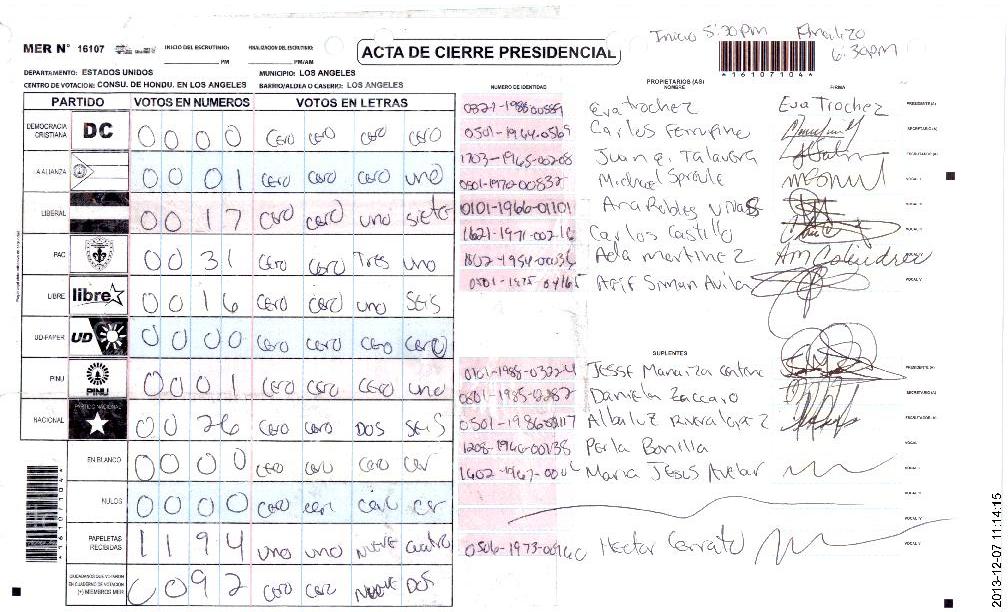 Inicio 5:30pm Finalizo 6:30pm
MER N° 16107 INICIO DEL ESCRUTINIO: FINALIZACION DEL ESCRUTINIO:
PM PM/AM
ACTA DE CIERRE PRESIDENCIAL
*16107104*
DEPARTAMENTO: ESTADOS UNIDOS MUNICIPIO: LOS ANGELES
CENTRO DE VOTACION: CONSU. DE HONDU. EN LOS ANGELES BARRIO/ALDEA O CASERIO: LOS ANGELES
PARTIDO VOTOS EN NUMEROS VOTOS EN LETRAS
DEMOCRACIA CRISTIANA DC 0 0 0 0 cero cero cero cero
0 0 0 1 cero cero cero uno
LIBERAL 0 0 1 7 cero cero uno siete
PAC 0 0 3 1 cero cero Tres uno
LIBRE libre 0 0 1 6 cero cero uno seis
UD-FAPER UD 0 0 0 0 cero cero cero cero
PINU PINU 0 0 0 1 cero cero cero uno
NACIONAL PARTIDO NACIONAL 0 0 26 cero cero DOS seis
EN BLANCO 0 0 0 0 cero cero cero cer
NULOS 0 0 0 0 cero cer cero cer
PAPELETAS RECIBIDAS 1 1 9 4 uno uno nueve cuatro
CIUDADANOS QUE VOTARON EN CUADERNO DE VOTACION (+) MIEMBROS MER 0 0 9 2 cero cero nueve DOS
*16107104*
NUMERO DE IDENTIDAD PROPIETARIOS (AS) NOMBRE FIRMA
Eva Trochez Eva Trochez PRESIDENTE (A)
0501-1964-0569 Carlos Ferrufine SECRETARIO (A)
1703-1965-00208 Juan Talavera ESCRUTADOR (A)
0501-1970-00832 Michael Sproule VOCAL I
0101-1966-01101 Ana Robles Vivas VOCAL
1621-1971-00216 Carlos Castillo VOCAL
Ada Martinez VOCAL
Arif Siman Avila VOCAL V
SUPLENTES
0101-1985-03224 PRESIDENTE (A)
Daniela Zaccaro SECRETARIO (A)
ESCRUTADOR (A)
1208-1960-00138 Perla Bonilla VOCAL
Maria Jesus Avelar VOCAL
VOCAL
VOCAL V
Hector Cerrato VOCAL V
2013-12-07 11:14:15